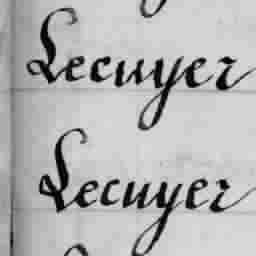 Lecuyer
Lecuyer